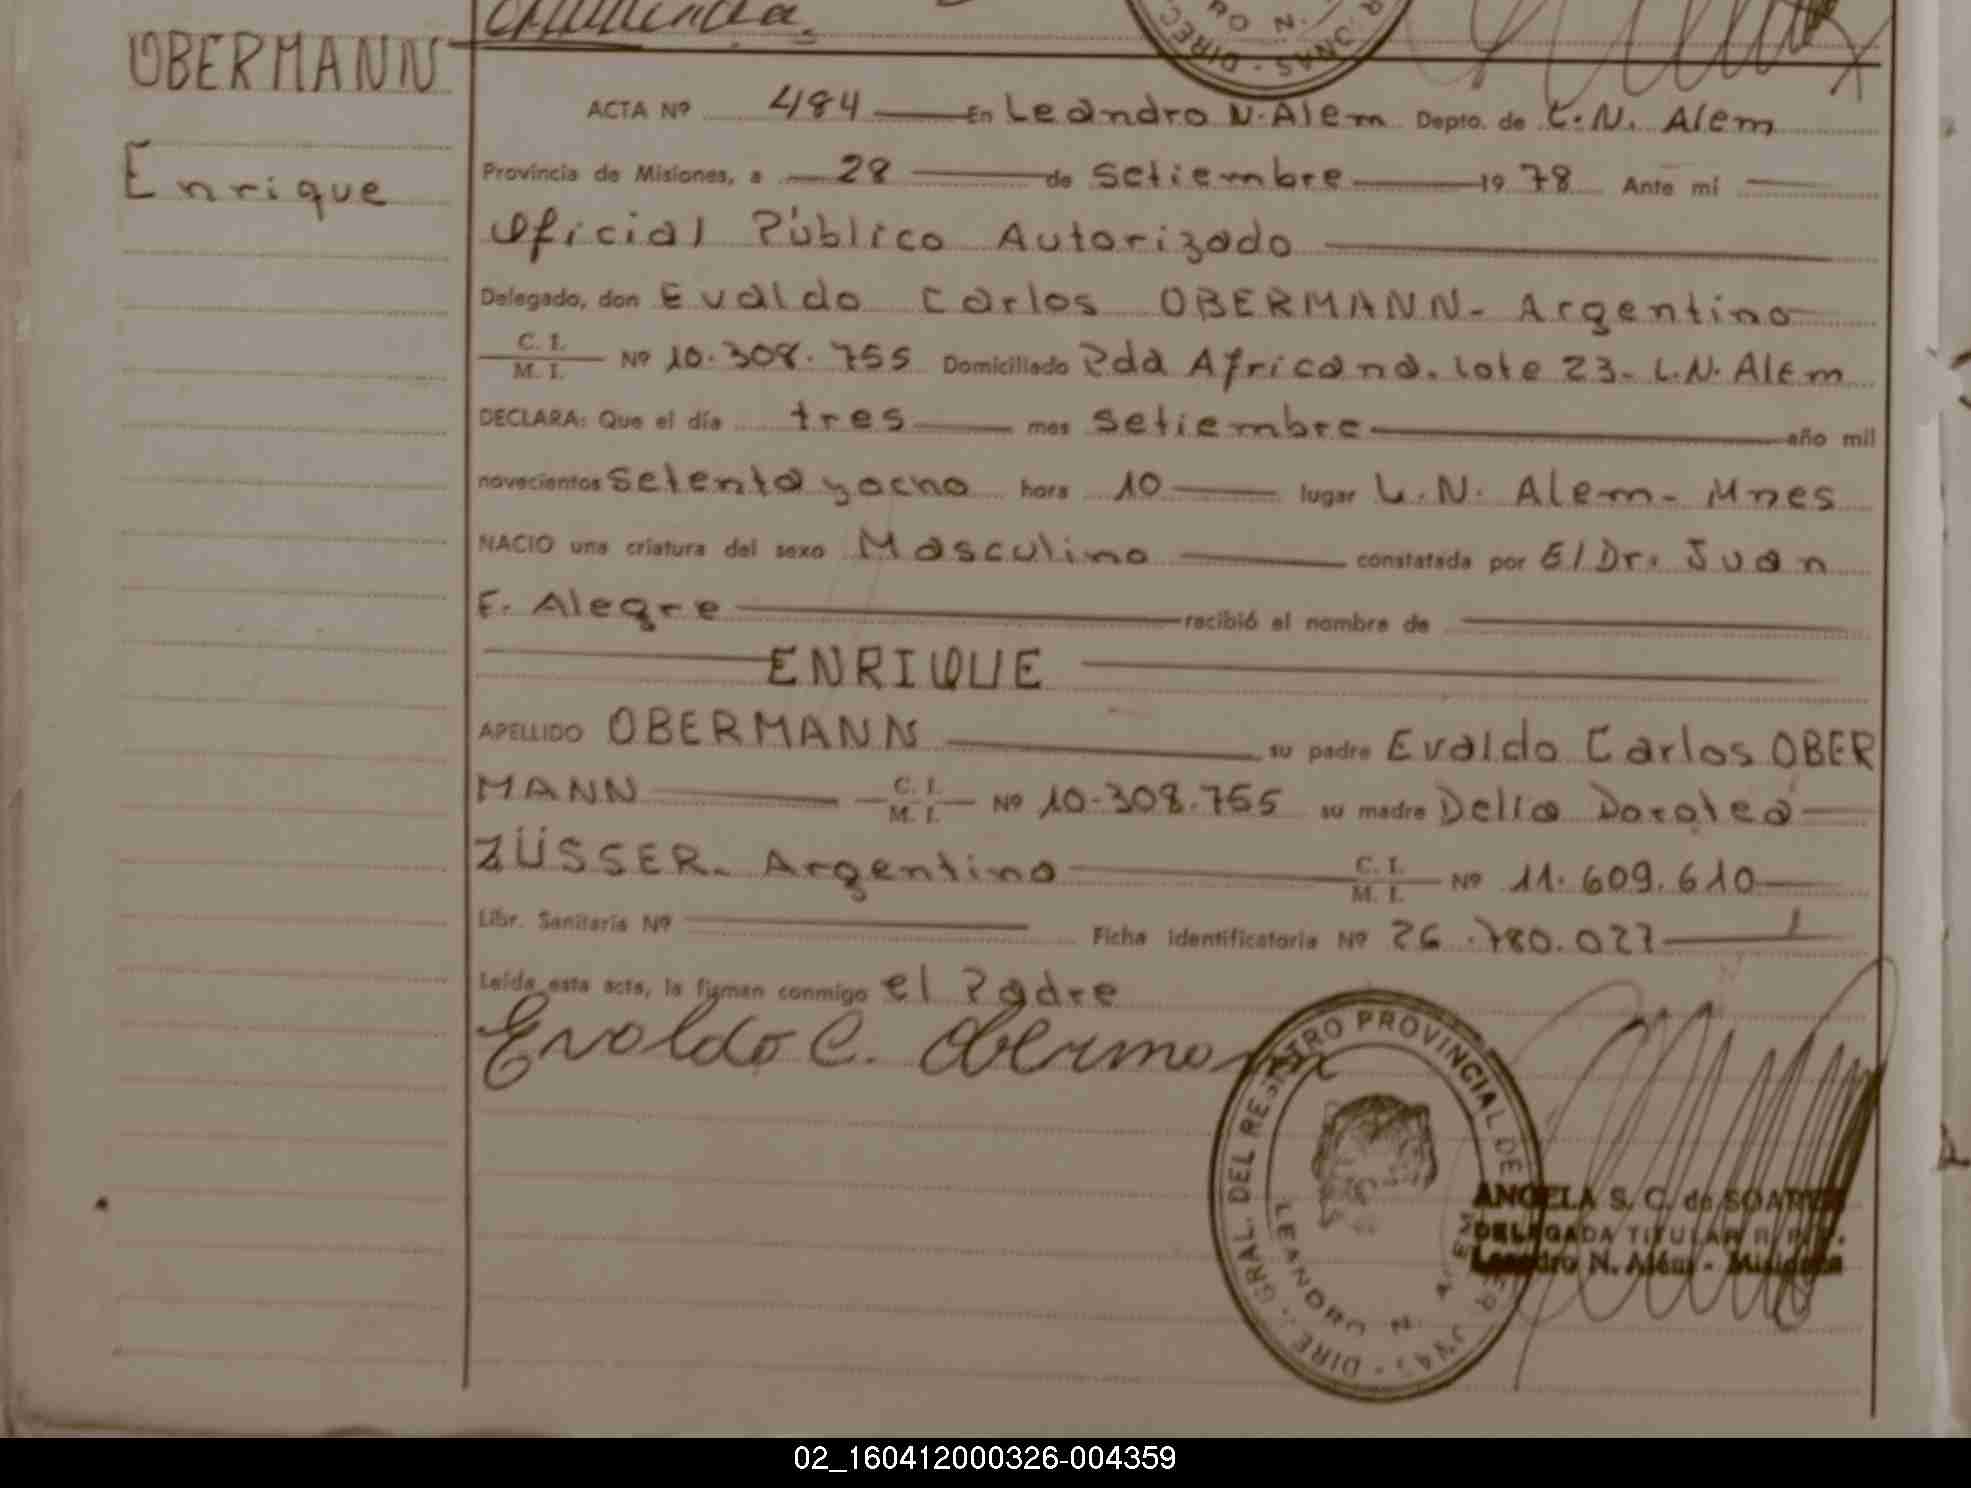 OBERMANN
Enrique
ACTA Nº 484 En Leandro N. Alem Depto. de L. N. Alem
Provincia de Misiones, a 28 de Setiembre 1978 Ante mí
Oficial Público Autorizado
Delegado, don Evaldo Carlos OBERMANN - Argentino
C. I.
M. I. Nº 10.308.755 Domiciliado Pda Africana. lote 23 - L.N. Alem
DECLARA: Que el día tres mes Setiembre año mil
novecientos setenta y ocho hora 10 lugar L.N. Alem - Mnes
NACIO una criatura del sexo Masculino constatada por El Dr. Juan
E. Alegre recibió el nombre de
ENRIQUE
APELLIDO OBERMANN su padre Evaldo Carlos OBER
MANN C. I.
M. I. Nº 10.308.755 su madre Delia Dorotea
ZÜSSER - Argentina C. I.
M. I. Nº 11.609.610
Libr. Sanitaria Nº Ficha identificatoria Nº 26.780.027
Leída esta acta, la firman conmigo el Padre
Evaldo C. Obermann
DIRE. GRAL. DEL REGISTRO PROVINCIAL DE
LEANDRO N. ALEM
ANGELA S. C. de SOARES
DELEGADA TITULAR R. P. P.
Leandro N. Além - Misiones
02_160412000326-004359